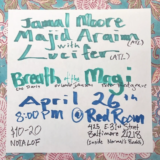 Jamal Moore
Majid Araim (ATL)
with
Lucifer (ATL)
Breath of the Magi
April 26th
8:00 pm @ Red Room
$10-20
NOTALOF
425 E 31st Street
Baltimore 21218
(inside Normal's Books)